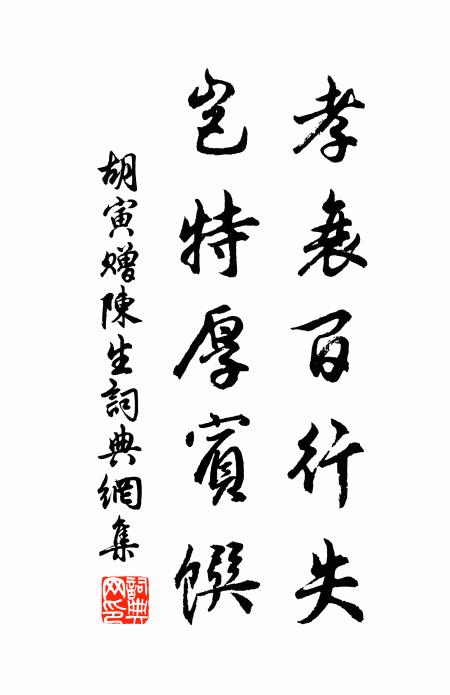 孝衰百行失
豈特厚賓饌
胡寅贈陳生詞典網集
詞典網印